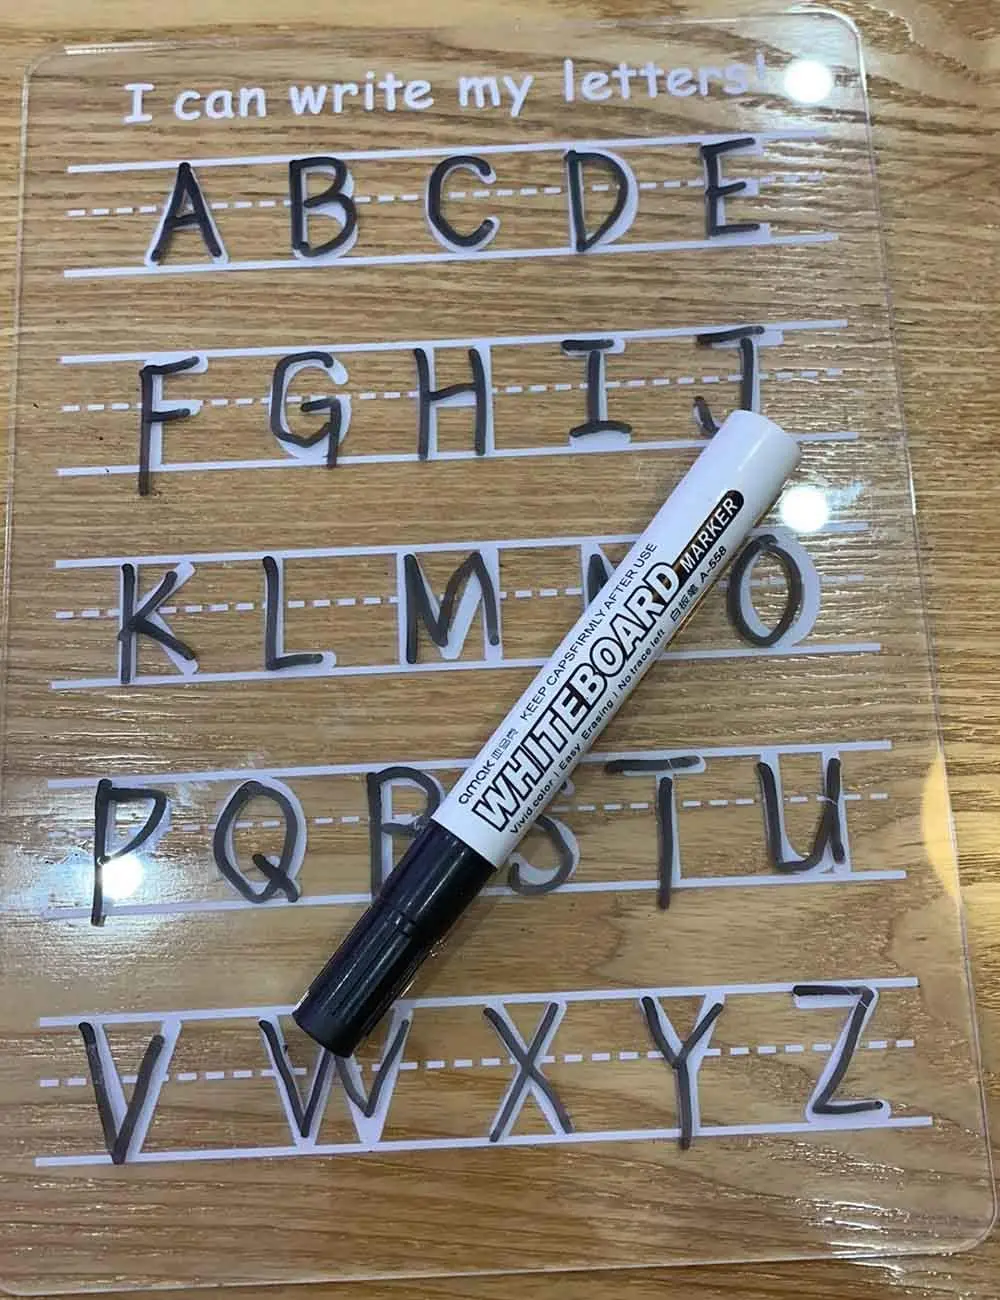 I can write my letters!
A B C D E
F G H I J
K L M N O
P Q R S T U
V W X Y Z
amak
KEEP CAPSFIRMLY AFTER USE
WHITEBOARD MARKER
Vivid color | Easy Erasing | No trace left 白板笔 A-558